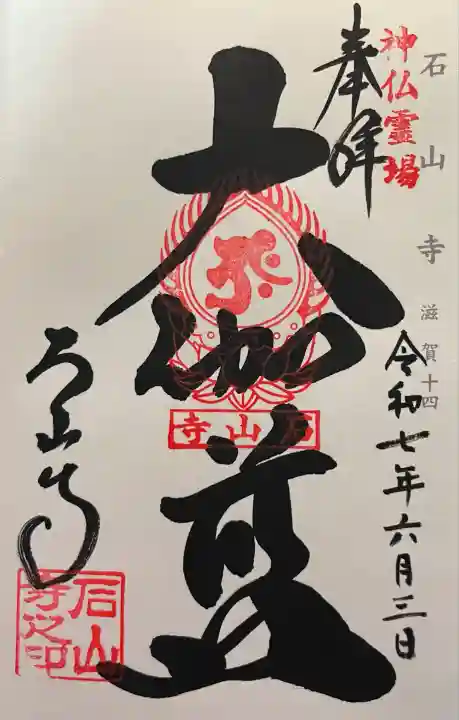 石山寺 滋賀十四
神仏霊場
奉拝
令和七年六月三日
大伽藍
石山寺
石山寺
石山寺之印